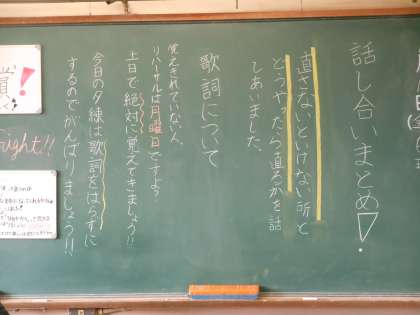 話し合いまとめ!
直さないといけない所と
どうやったら直るかを話
しあいました。
歌詞について
覚えきれていない人
リハーサルは月曜日ですよ
土日で絶対に覚えてきましょう!!
今日の夕練は歌詞をはらずに
するのでがんばりましょう!!
賞!
right!!